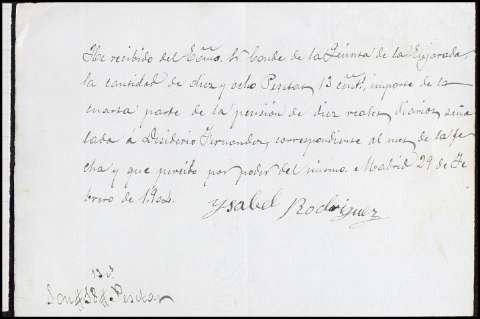 He recibido del Excmo. Sr Conde de la Quinta de la Enjarada,
la cantidad de diez y ocho Pesetas 13 cént, importe de la
cuarta parte de la pensión de diez reales diarios, seña
lada á Desiderio Fernandez, correspondiente al mes de la fe
cha y que percibo por poder del mismo. Madrid 29 de Fe
brero de
Ysabel Rodriguez
13 c.
Son # 18 # Pesetas